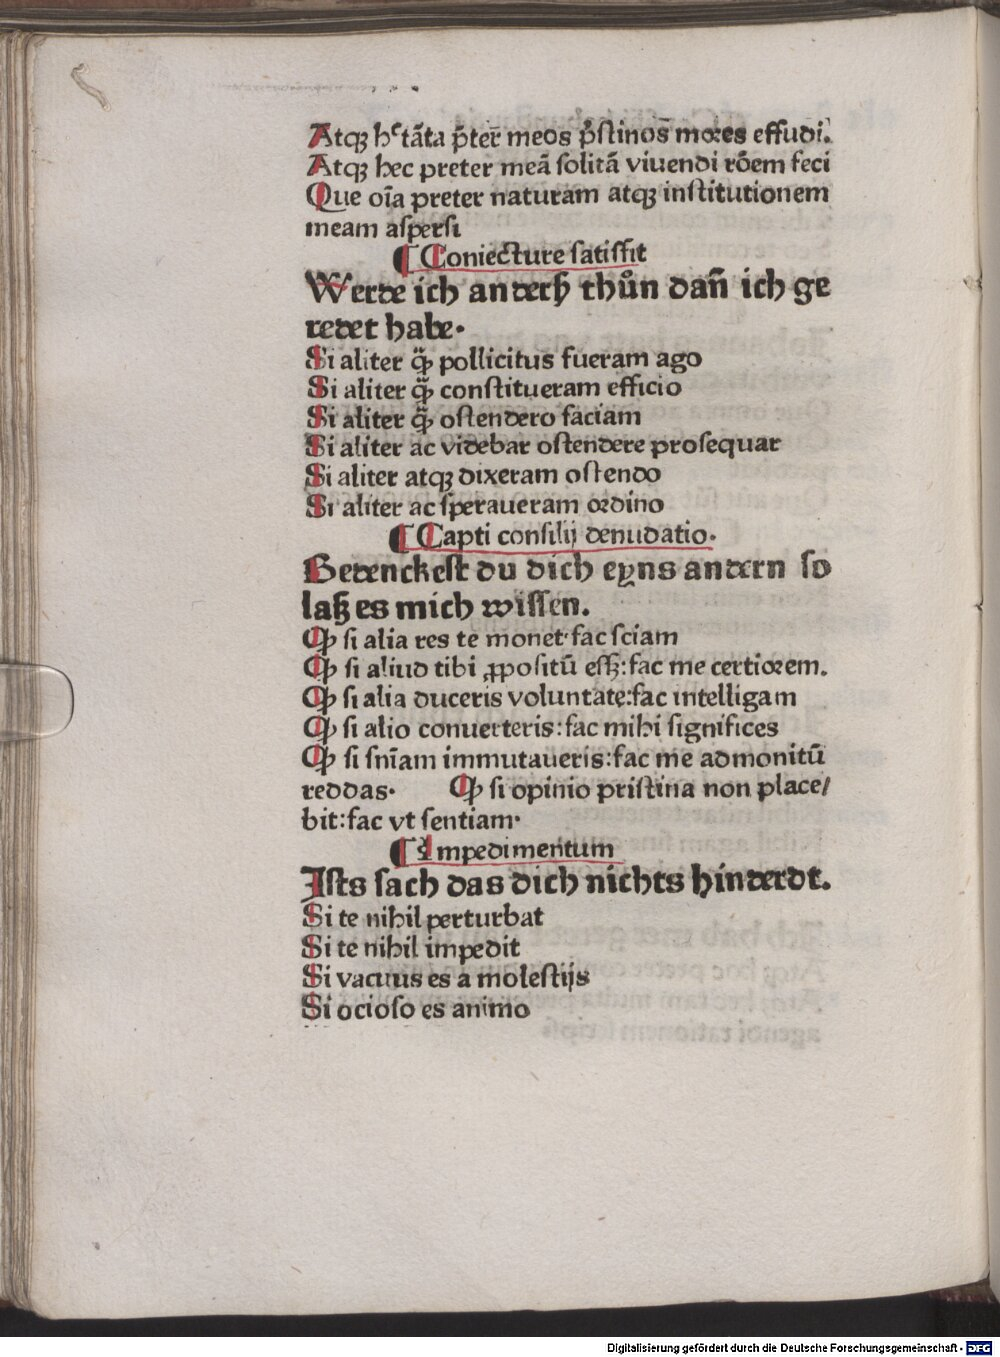 Atqꝫ hͨ tãta p̃ter̃ meos p̃stinos̃ moꝛes effudi.
Atqꝫ hec preter meã solitã viuendi rõem feci
Que oĩa preter naturam atqꝫ institutionem
meam aspersi
¶ Coniecture satisfit
Werde ich anderß thůn dañ ich ge
redet habe.
Si aliter q̃ꝫ pollicitus fueram ago
Si aliter q̃ꝫ constitueram efficio
Si aliter q̃ꝫ ostendero faciam
Si aliter ac videbar ostendere prosequar
Si aliter atqꝫ dixeram ostendo
Si aliter ac speraueram oꝛdino
¶ Capti consilij denudatio.
Bedenckest du dich eyns andern so
laß es mich wissen.
Qꝫ si alia res te monet: fac sciam
Qꝫ si aliud tibi ꝓpositũ essꝫ: fac me certioꝛem.
Qꝫ si alia duceris voluntate: fac intelligam
Qꝫ si alio conuerteris: fac mihi significes
Qꝫ si sñiam immutaueris: fac me admonitũ
reddas. Qꝫ si opinio pristina non place/
bit: fac vt sentiam.
¶ Impedimentum
Ists sach das dich nichts hinderdt.
Si te nihil perturbat
Si te nihil impedit
Si vacuus es a molestijs
Si ocioso es animo
Digitalisierung gefördert durch die Deutsche Forschungsgemeinschaft - DFG